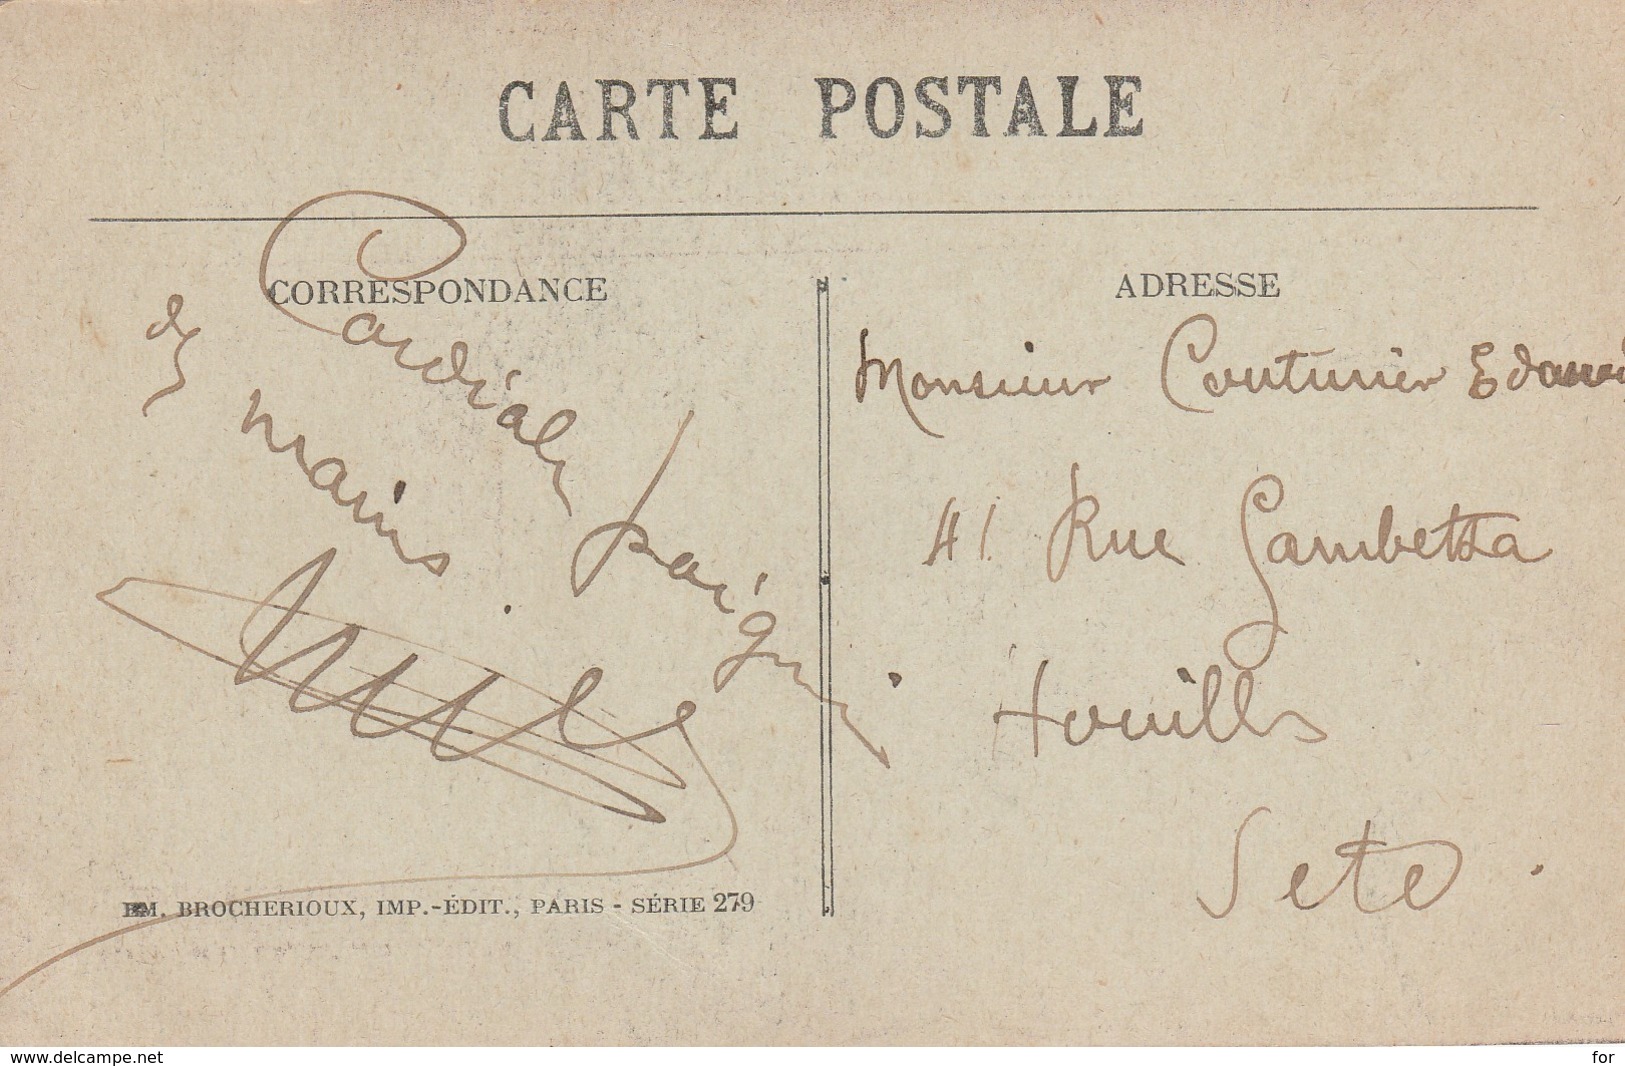 CARTE POSTALE
CORRESPONDANCE
Cordiale poignée
de mains
EM. BROCHERIOUX, IMP.-ÉDIT., PARIS - SÉRIE 279
ADRESSE
Monsieur Couturier Edouard
41 Rue Gambetta
Houilles
S et O.
www.delcampe.net
for